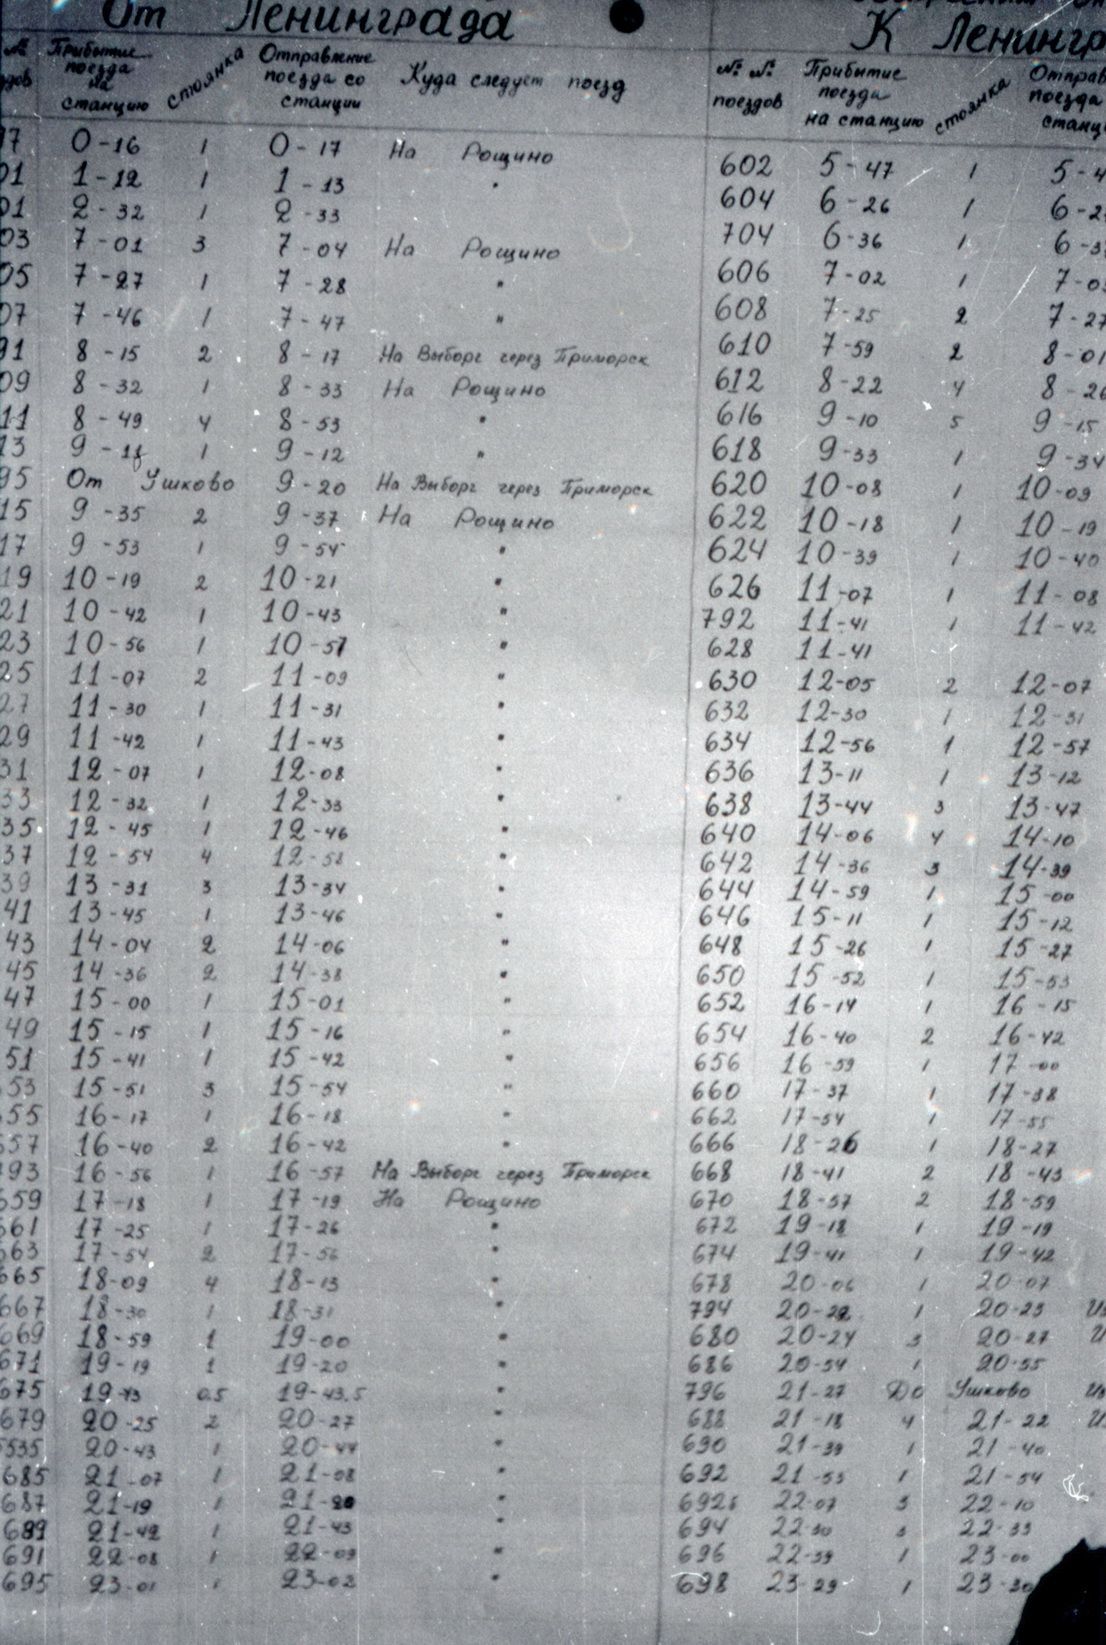 От Ленинграда
К Ленингр
№ Прибытие поезда на станцию стоянка Отправление поезда со станции Куда следует поезд
№ № поездов Прибытие поезда на станцию стоянка Отправ поезда станц
7 0-16 1 0-17 На Рощино
01 1-12 1 1-13 "
01 2-32 1 2-33
03 7-01 3 7-04 На Рощино
05 7-27 1 7-28 "
07 7-46 1 7-47 "
91 8-15 2 8-17 На Выборг через Приморск
09 8-32 1 8-33 На Рощино
11 8-49 4 8-53 "
13 9-11 1 9-12 "
95 От Ушково 9-20 На Выборг через Приморск
15 9-35 2 9-37 На Рощино
17 9-53 1 9-54 "
19 10-19 2 10-21 "
21 10-42 1 10-43 "
23 10-56 1 10-57 "
25 11-07 2 11-09 "
27 11-30 1 11-31 "
29 11-42 1 11-43 "
31 12-07 1 12-08 "
33 12-32 1 12-33 "
35 12-45 1 12-46 "
37 12-54 4 12-58 "
39 13-31 3 13-34 "
41 13-45 1 13-46 "
43 14-04 2 14-06 "
45 14-36 2 14-38 "
47 15-00 1 15-01 "
49 15-15 1 15-16 "
51 15-41 1 15-42 "
53 15-51 3 15-54 "
55 16-17 1 16-18 "
657 16-40 2 16-42 "
793 16-56 1 16-57 На Выборг через Приморск
659 17-18 1 17-19 На Рощино
661 17-25 1 17-26 "
663 17-54 2 17-56 "
665 18-09 4 18-13 "
667 18-30 1 18-31 "
669 18-59 1 19-00 "
671 19-19 1 19-20 "
675 19-43 0.5 19-43,5 "
679 20-25 2 20-27 "
535 20-43 1 20-44 "
685 21-07 1 21-08 "
687 21-19 1 21-20 "
689 21-42 1 21-43 "
691 22-08 1 22-09 "
695 23-01 1 23-02 "
602 5-47 1 5-4
604 6-26 1 6-2
704 6-36 1 6-3
606 7-02 1 7-03
608 7-25 2 7-27
610 7-59 2 8-01
612 8-22 4 8-26
616 9-10 5 9-15
618 9-33 1 9-34
620 10-08 1 10-09
622 10-18 1 10-19
624 10-39 1 10-40
626 11-07 1 11-08
792 11-41 1 11-42
628 11-41
630 12-05 2 12-07
632 12-30 1 12-31
634 12-56 1 12-57
636 13-11 1 13-12
638 13-44 3 13-47
640 14-06 4 14-10
642 14-36 3 14-39
644 14-59 1 15-00
646 15-11 1 15-12
648 15-26 1 15-27
650 15-52 1 15-53
652 16-14 1 16-15
654 16-40 2 16-42
656 16-59 1 17-00
660 17-37 1 17-38
662 17-54 1 17-55
666 18-26 1 18-27
668 18-41 2 18-43
670 18-57 2 18-59
672 19-18 1 19-19
674 19-41 1 19-42
678 20-06 1 20-07
794 20-22 1 20-23
680 20-24 3 20-27
686 20-54 1 20-55
796 21-27 До Ушково
688 21-18 4 21-22
690 21-39 1 21-40
692 21-53 1 21-54
692б 22-07 3 22-10
694 22-30 3 22-33
696 22-59 1 23-00
698 23-29 1 23-30